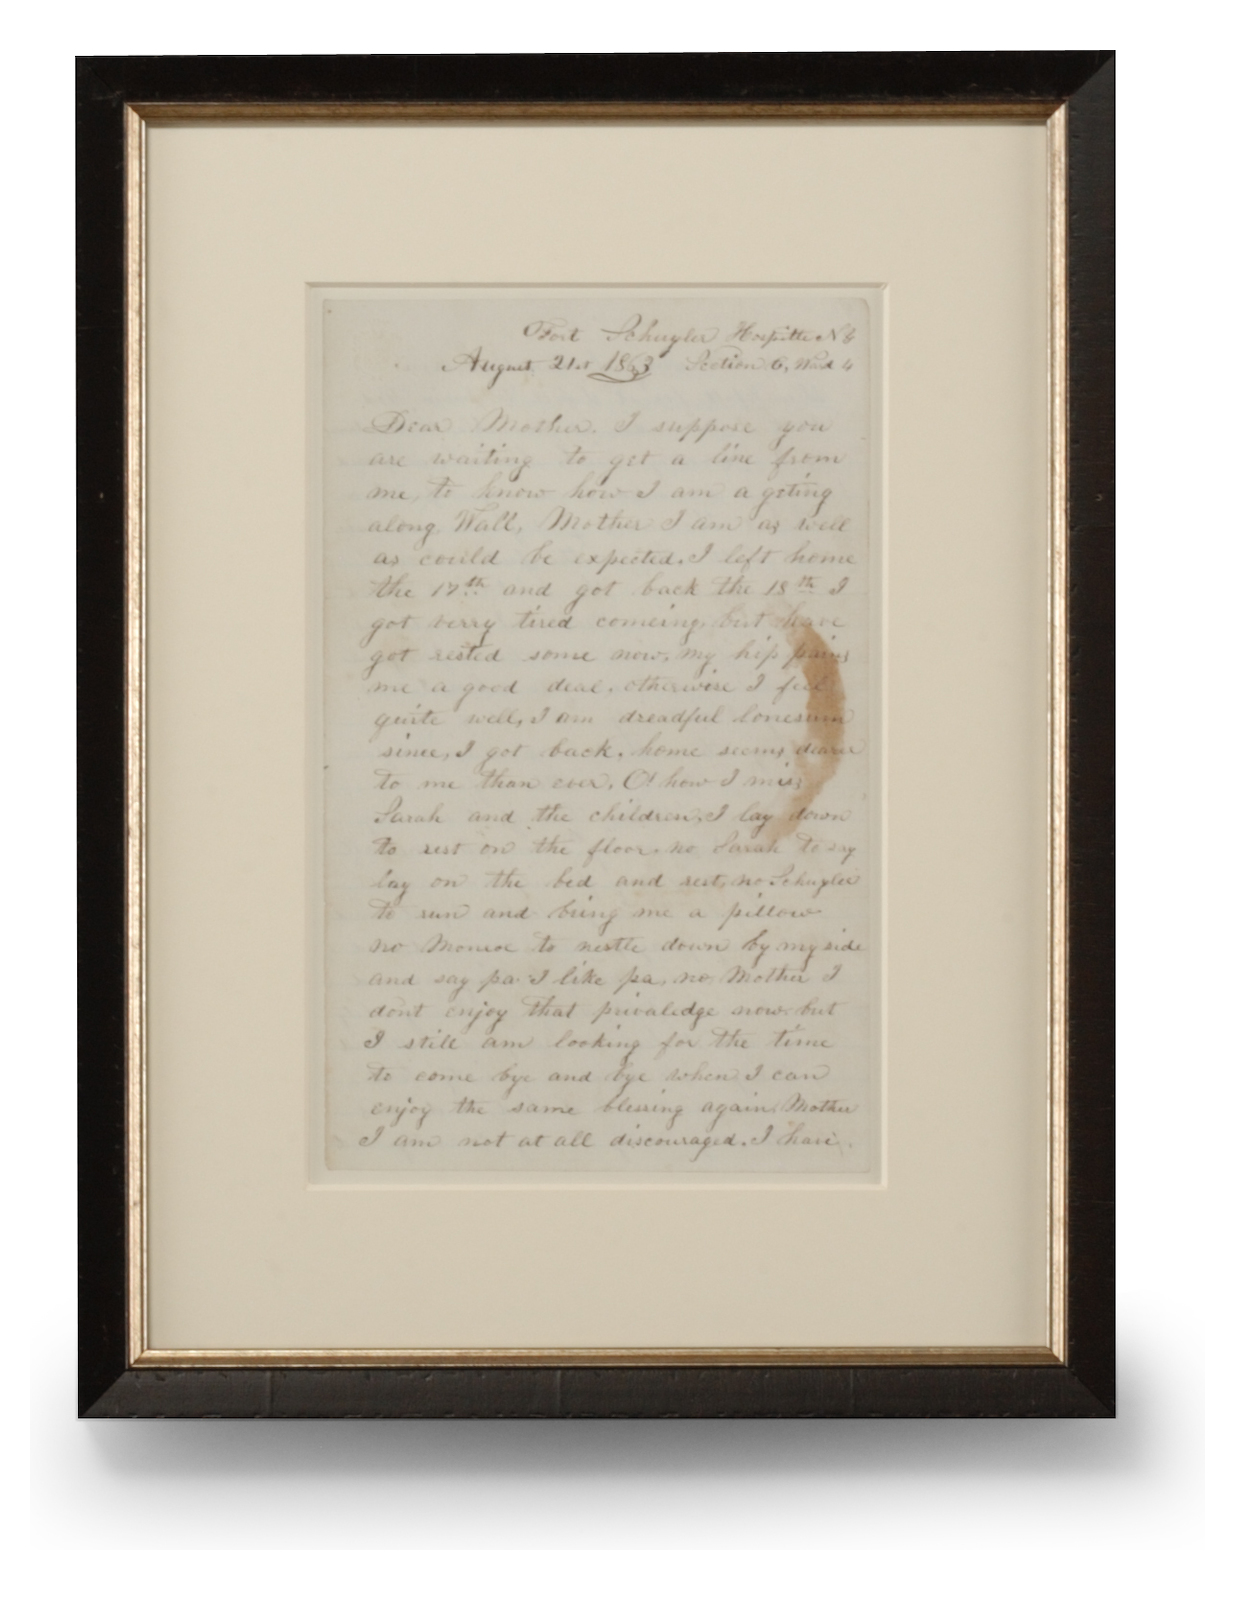 Fort Schuyler Hospitle N Y
August 21st 1863 Section 6, Ward 4
Dear Mother. I suppose you
are waiting to get a line from
me, to know how I am a geting
along. Wall, Mother I am as well
as could be expected. I left home
the 17th and got back the 18th I
got verry tired comeing, but have
got rested some now, my hip pains
me a good deal. otherwise I feel
quite well, I am dreadful lonesum
since, I got back. home seems dearer
to me than ever. O! how I miss
Sarah and the children, I lay down
to rest on the floor. no Sarah to say
lay on the bed and rest, no Schuyler
to run and bring me a pillow
no Monroe to nestle down by my side
and say pa I like pa, no Mother I
dont enjoy that privaledge now. but
I still am looking for the time
to come bye and bye when I can
enjoy the same blessing again. Mother
I am not at all discouraged. I have